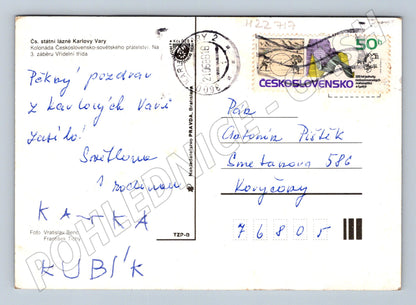 Čs. státní lázně Karlovy Vary
Kolonáda Československo-sovětského přátelství. Na
3. záběru Vřídelní třída
Pěkný pozdrav
z Karlových Varů
zasílá
Světlana
s rodinou
KATKA
KUBÍK
Foto Vratislav
František Tichý
TZP-8
PRAVDA, Bratislava
HZZ 717
VARY 2
50 h
ČESKOSLOVENSKO
Pan
Antonín Pištěk
Smetanova 586
Koryčany
76805
POHLEDNICE - CASH